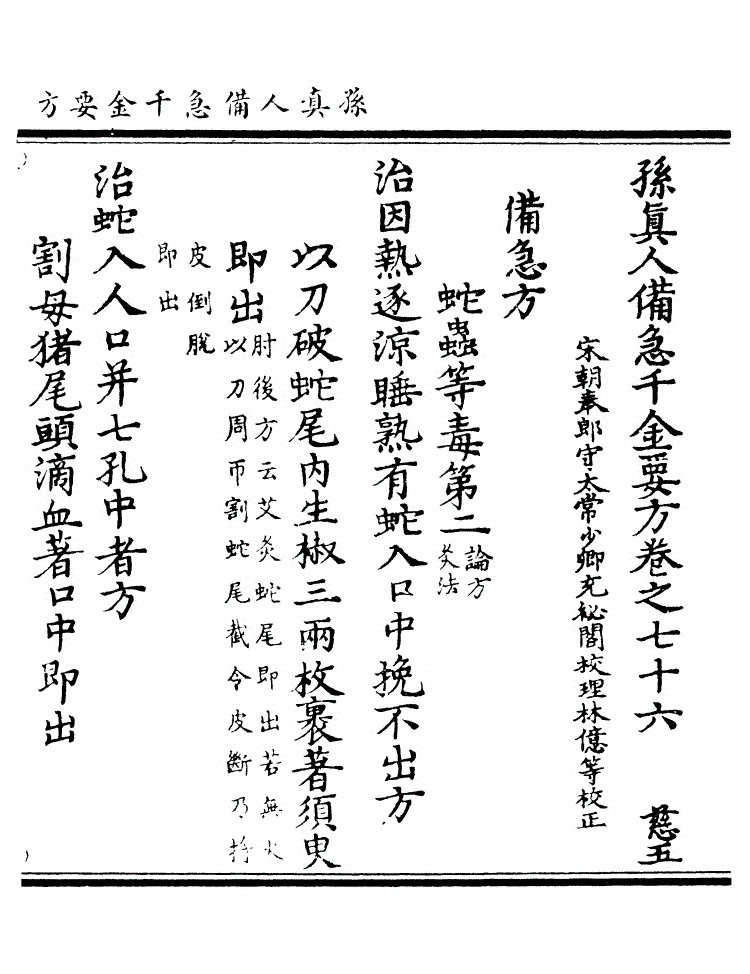 孫真人備急千金要方
孫眞人備急千金要方卷之七十六 慈五
宋朝奉郎守太常少卿充秘閣校理林億等校正
備急方
蛇蟲等毒第二
論方
灸法
治因熱逐涼睡熟有蛇入口中挽不出方
以刀破蛇尾內生椒三兩枚裹著須臾
即出
肘後方云艾灸蛇尾即出若無火
以刀周帀割蛇尾截令皮斷乃捋
皮倒脫
即出
治蛇入人口并七孔中者方
割母猪尾頭滴血著口中即出